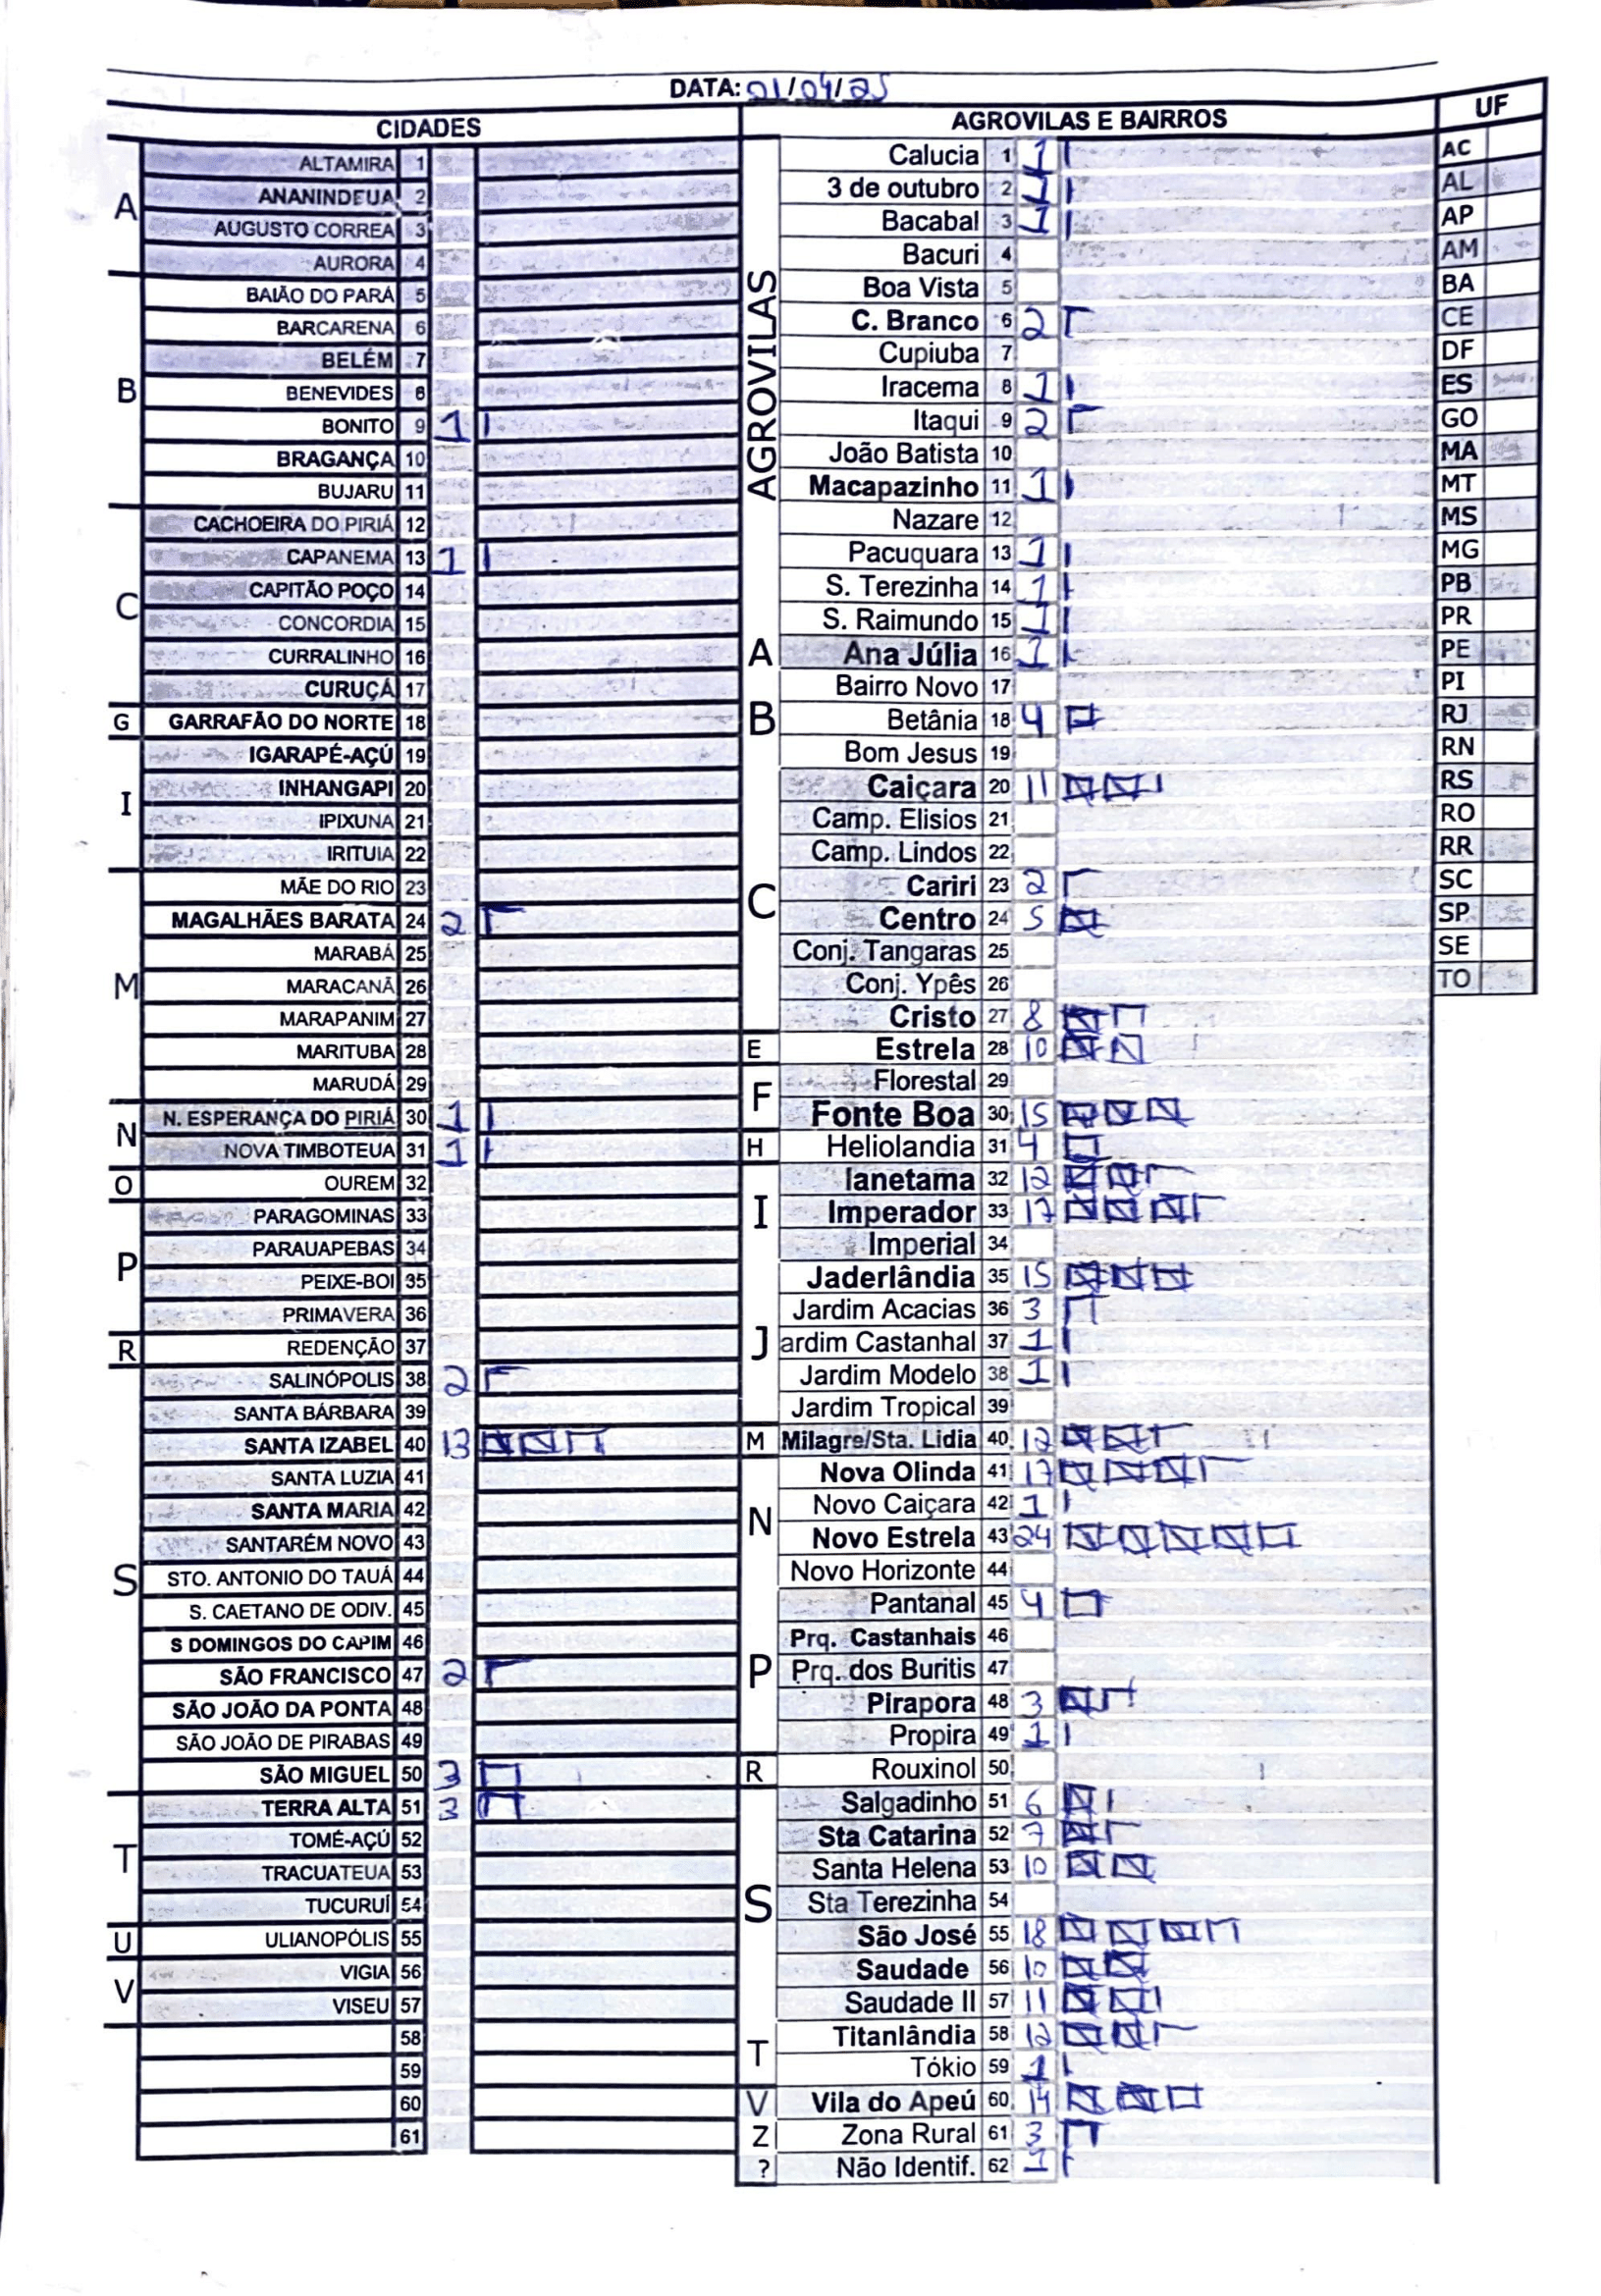 DATA: 01/04/25
CIDADES
A
ALTAMIRA 1
ANANINDEUA 2
AUGUSTO CORREA 3
AURORA 4
B
BAIÃO DO PARÁ 5
BARCARENA 6
BELÉM 7
BENEVIDES 8
BONITO 9 1
BRAGANÇA 10
BUJARU 11
C
CACHOEIRA DO PIRIÁ 12
CAPANEMA 13 1
CAPITÃO POÇO 14
CONCORDIA 15
CURRALINHO 16
CURUÇÁ 17
G
GARRAFÃO DO NORTE 18
I
IGARAPÉ-AÇÚ 19
INHANGAPI 20
IPIXUNA 21
IRITUIA 22
M
MÃE DO RIO 23
MAGALHÃES BARATA 24 2
MARABÁ 25
MARACANÃ 26
MARAPANIM 27
MARITUBA 28
MARUDÁ 29
N
N. ESPERANÇA DO PIRIÁ 30 1
NOVA TIMBOTEUA 31 1
O
OUREM 32
P
PARAGOMINAS 33
PARAUAPEBAS 34
PEIXE-BOI 35
PRIMAVERA 36
R
REDENÇÃO 37
S
SALINÓPOLIS 38 2
SANTA BÁRBARA 39
SANTA IZABEL 40 13
SANTA LUZIA 41
SANTA MARIA 42
SANTARÉM NOVO 43
STO. ANTONIO DO TAUÁ 44
S. CAETANO DE ODIV. 45
S DOMINGOS DO CAPIM 46
SÃO FRANCISCO 47 2
SÃO JOÃO DA PONTA 48
SÃO JOÃO DE PIRABAS 49
SÃO MIGUEL 50 3
T
TERRA ALTA 51 3
TOMÉ-AÇÚ 52
TRACUATEUA 53
TUCURUÍ 54
U
ULIANOPÓLIS 55
V
VIGIA 56
VISEU 57
58
59
60
61
AGROVILAS E BAIRROS
AGROVILAS
Calucia 1 1
3 de outubro 2 1
Bacabal 3 1
Bacuri 4
Boa Vista 5
C. Branco 6 2
Cupiuba 7
Iracema 8 1
Itaqui 9 2
João Batista 10
Macapazinho 11 1
Nazare 12
Pacuquara 13 1
S. Terezinha 14 1
S. Raimundo 15 1
A
Ana Júlia 16 1
Bairro Novo 17
B
Betânia 18 4
Bom Jesus 19
Caiçara 20 11
Camp. Elisios 21
Camp. Lindos 22
C
Cariri 23 2
Centro 24 5
Conj. Tangaras 25
Conj. Ypês 26
Cristo 27 8
E
Estrela 28 10
F
Florestal 29
Fonte Boa 30 15
H
Heliolandia 31 4
I
Ianetama 32 12
Imperador 33 17
Imperial 34
J
Jaderlândia 35 15
Jardim Acacias 36 3
ardim Castanhal 37 1
Jardim Modelo 38 1
Jardim Tropical 39
M
Milagre/Sta. Lidia 40 12
N
Nova Olinda 41 17
Novo Caiçara 42 1
Novo Estrela 43 24
Novo Horizonte 44
P
Pantanal 45 4
Prq. Castanhais 46
Prq. dos Buritis 47
Pirapora 48 3
Propira 49 1
R
Rouxinol 50
S
Salgadinho 51 6
Sta Catarina 52 7
Santa Helena 53 10
Sta Terezinha 54
São José 55 18
Saudade 56 10
Saudade II 57 11
T
Titanlândia 58 12
Tókio 59 1
V
Vila do Apeú 60 14
Z
Zona Rural 61 3
?
Não Identif. 62 1
UF
AC
AL
AP
AM
BA
CE
DF
ES
GO
MA
MT
MS
MG
PB
PR
PE
PI
RJ
RN
RS
RO
RR
SC
SP
SE
TO